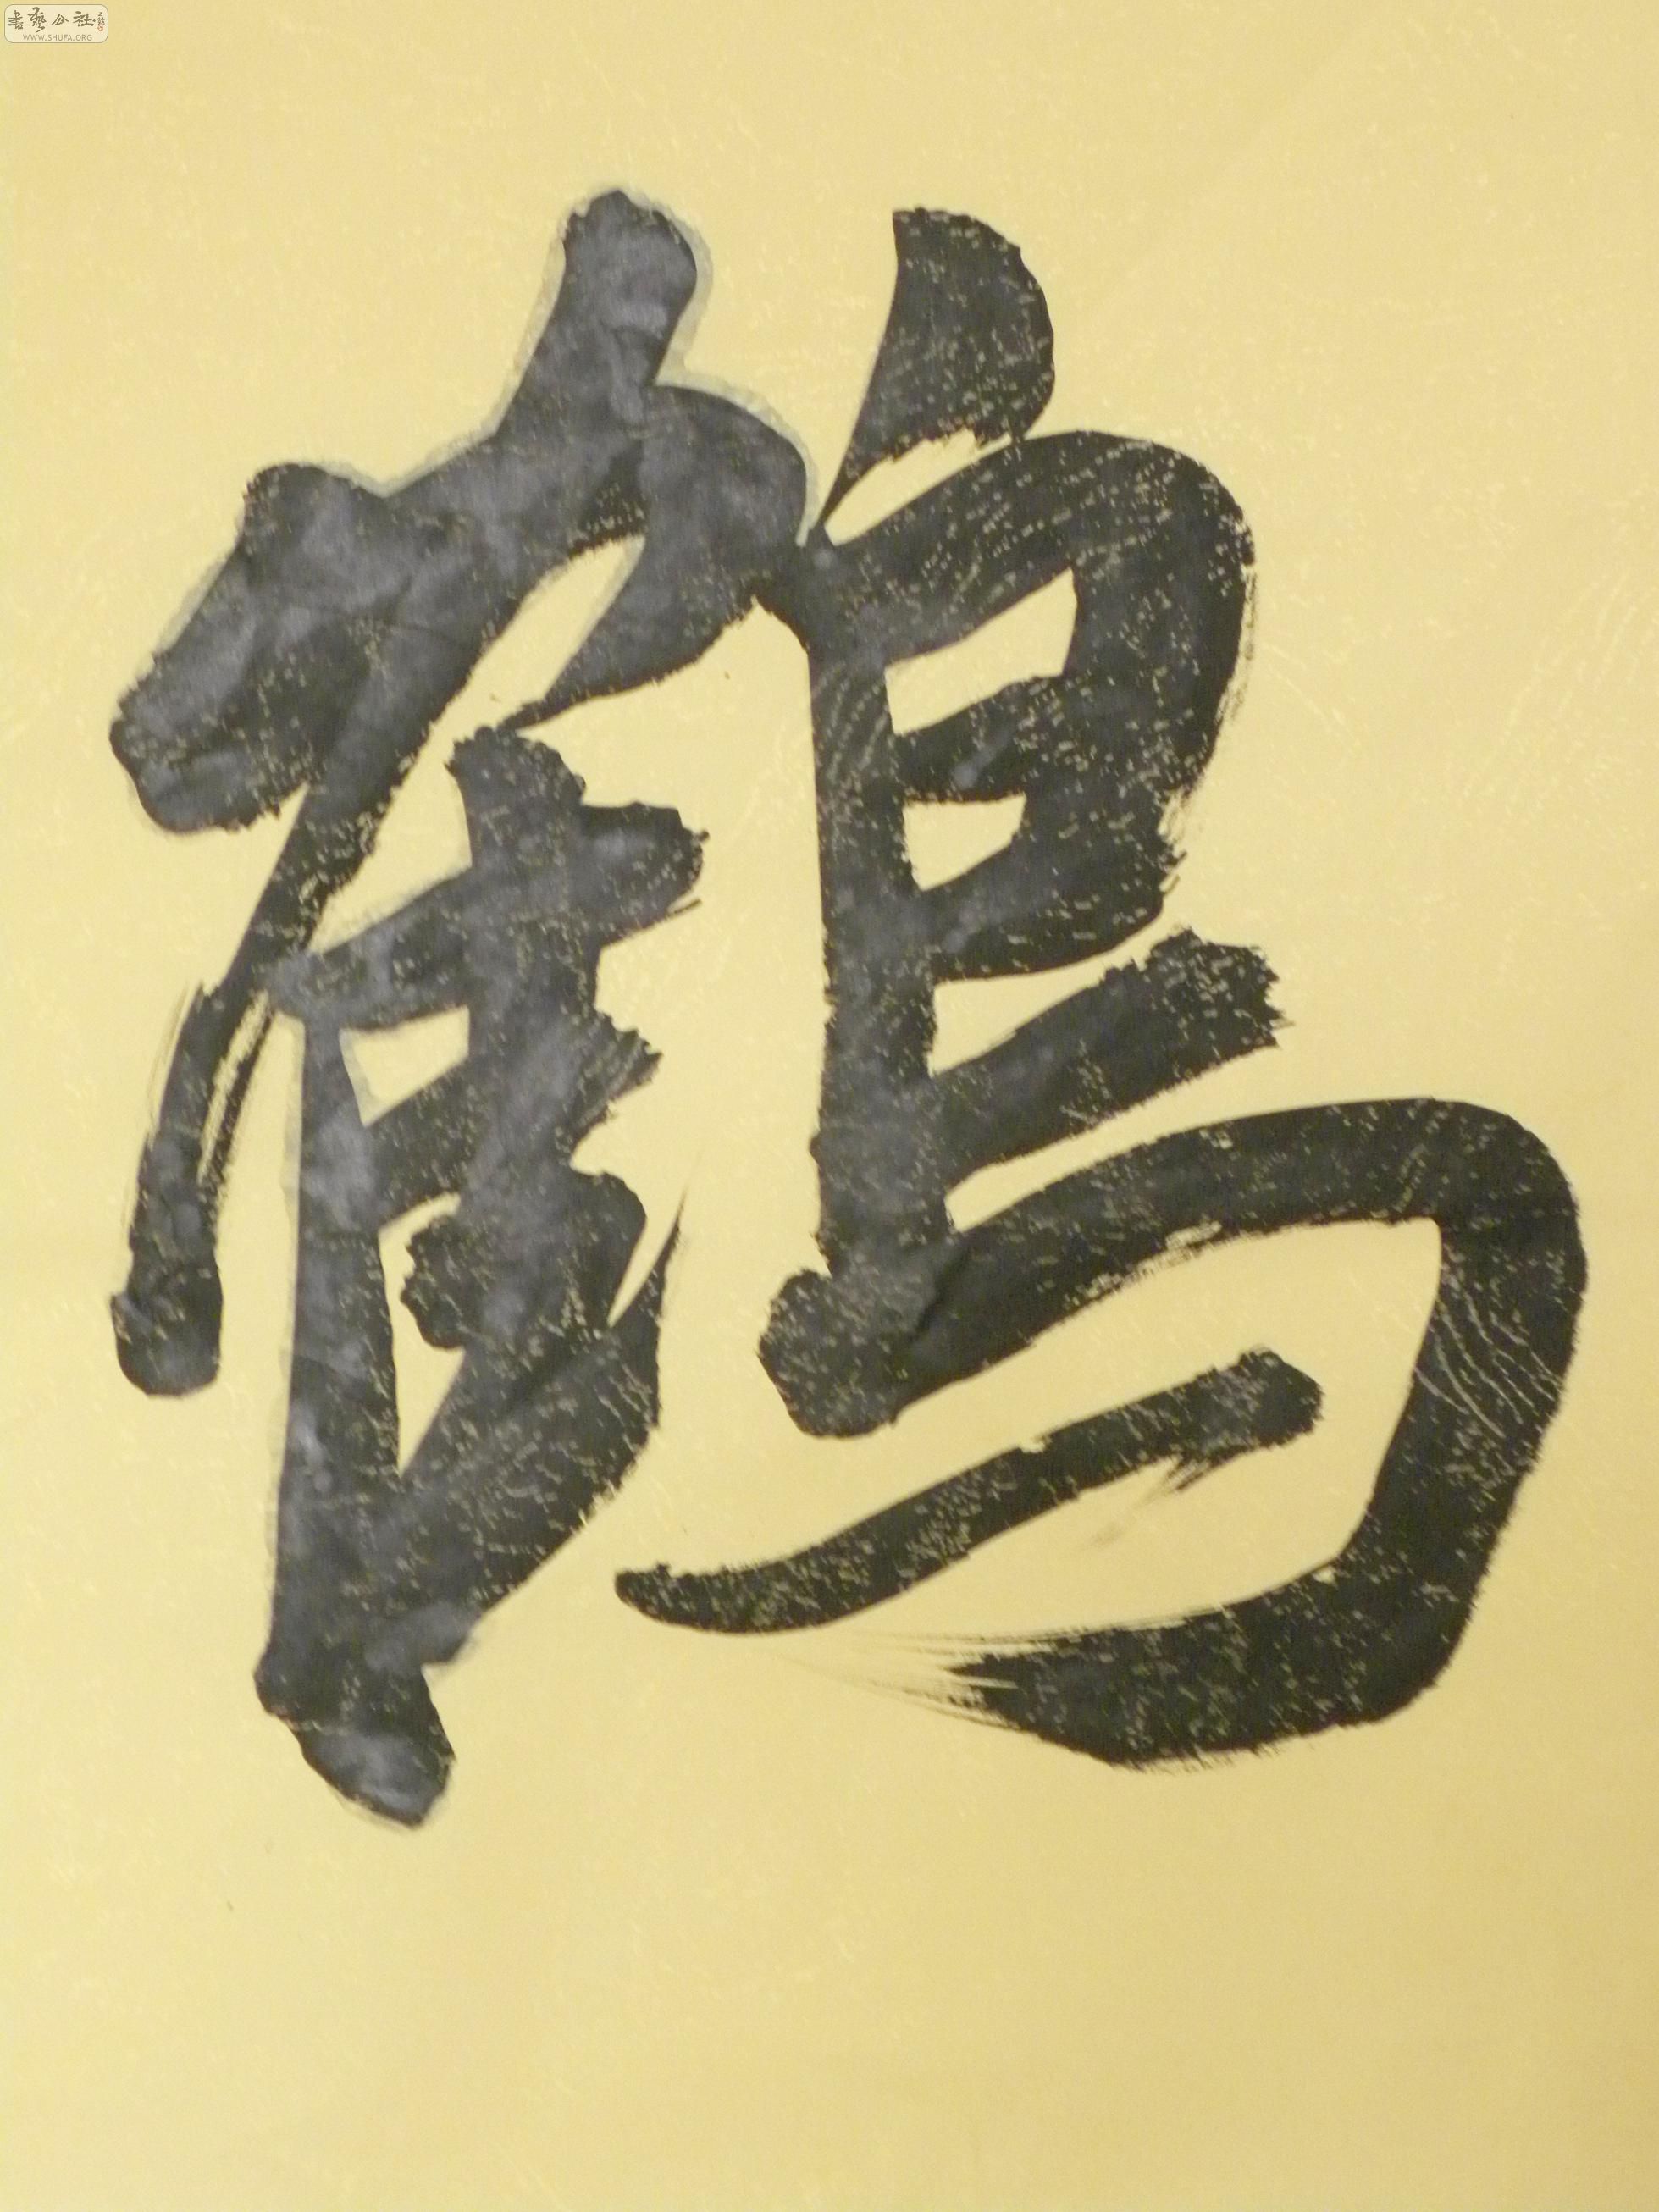 書藝公社
WWW.SHUFA.ORG
鶴